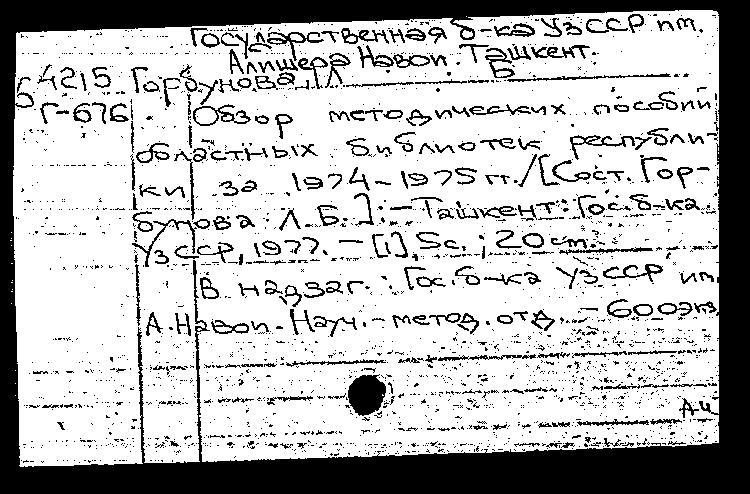 Государственная б-ка УзССР им.
Алишера Навои. Ташкент.
Б 4215 Горбунова, Л Б
Г-676. Обзор методических пособий
областных библиотек республи-
ки за 1974-1975 гг./[Сост. Гор-
бунова Л.Б.]; - Ташкент: Гос. б-ка
УзССР, 1977. - [1], 5с.; 20 ст.
В надзаг.: Гос. б-ка УзССР им.
А. Навои. Науч.-метод. отд. - 600экз.